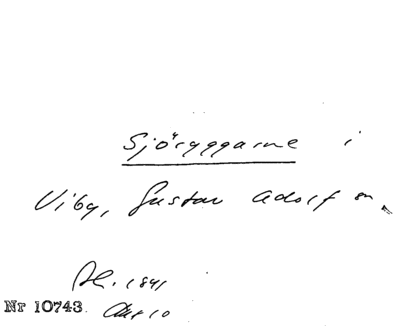 Sjöryggarne i
Viby, Gustav Adolf sn.
Ak. 1841
Nr 10743 Akt 10